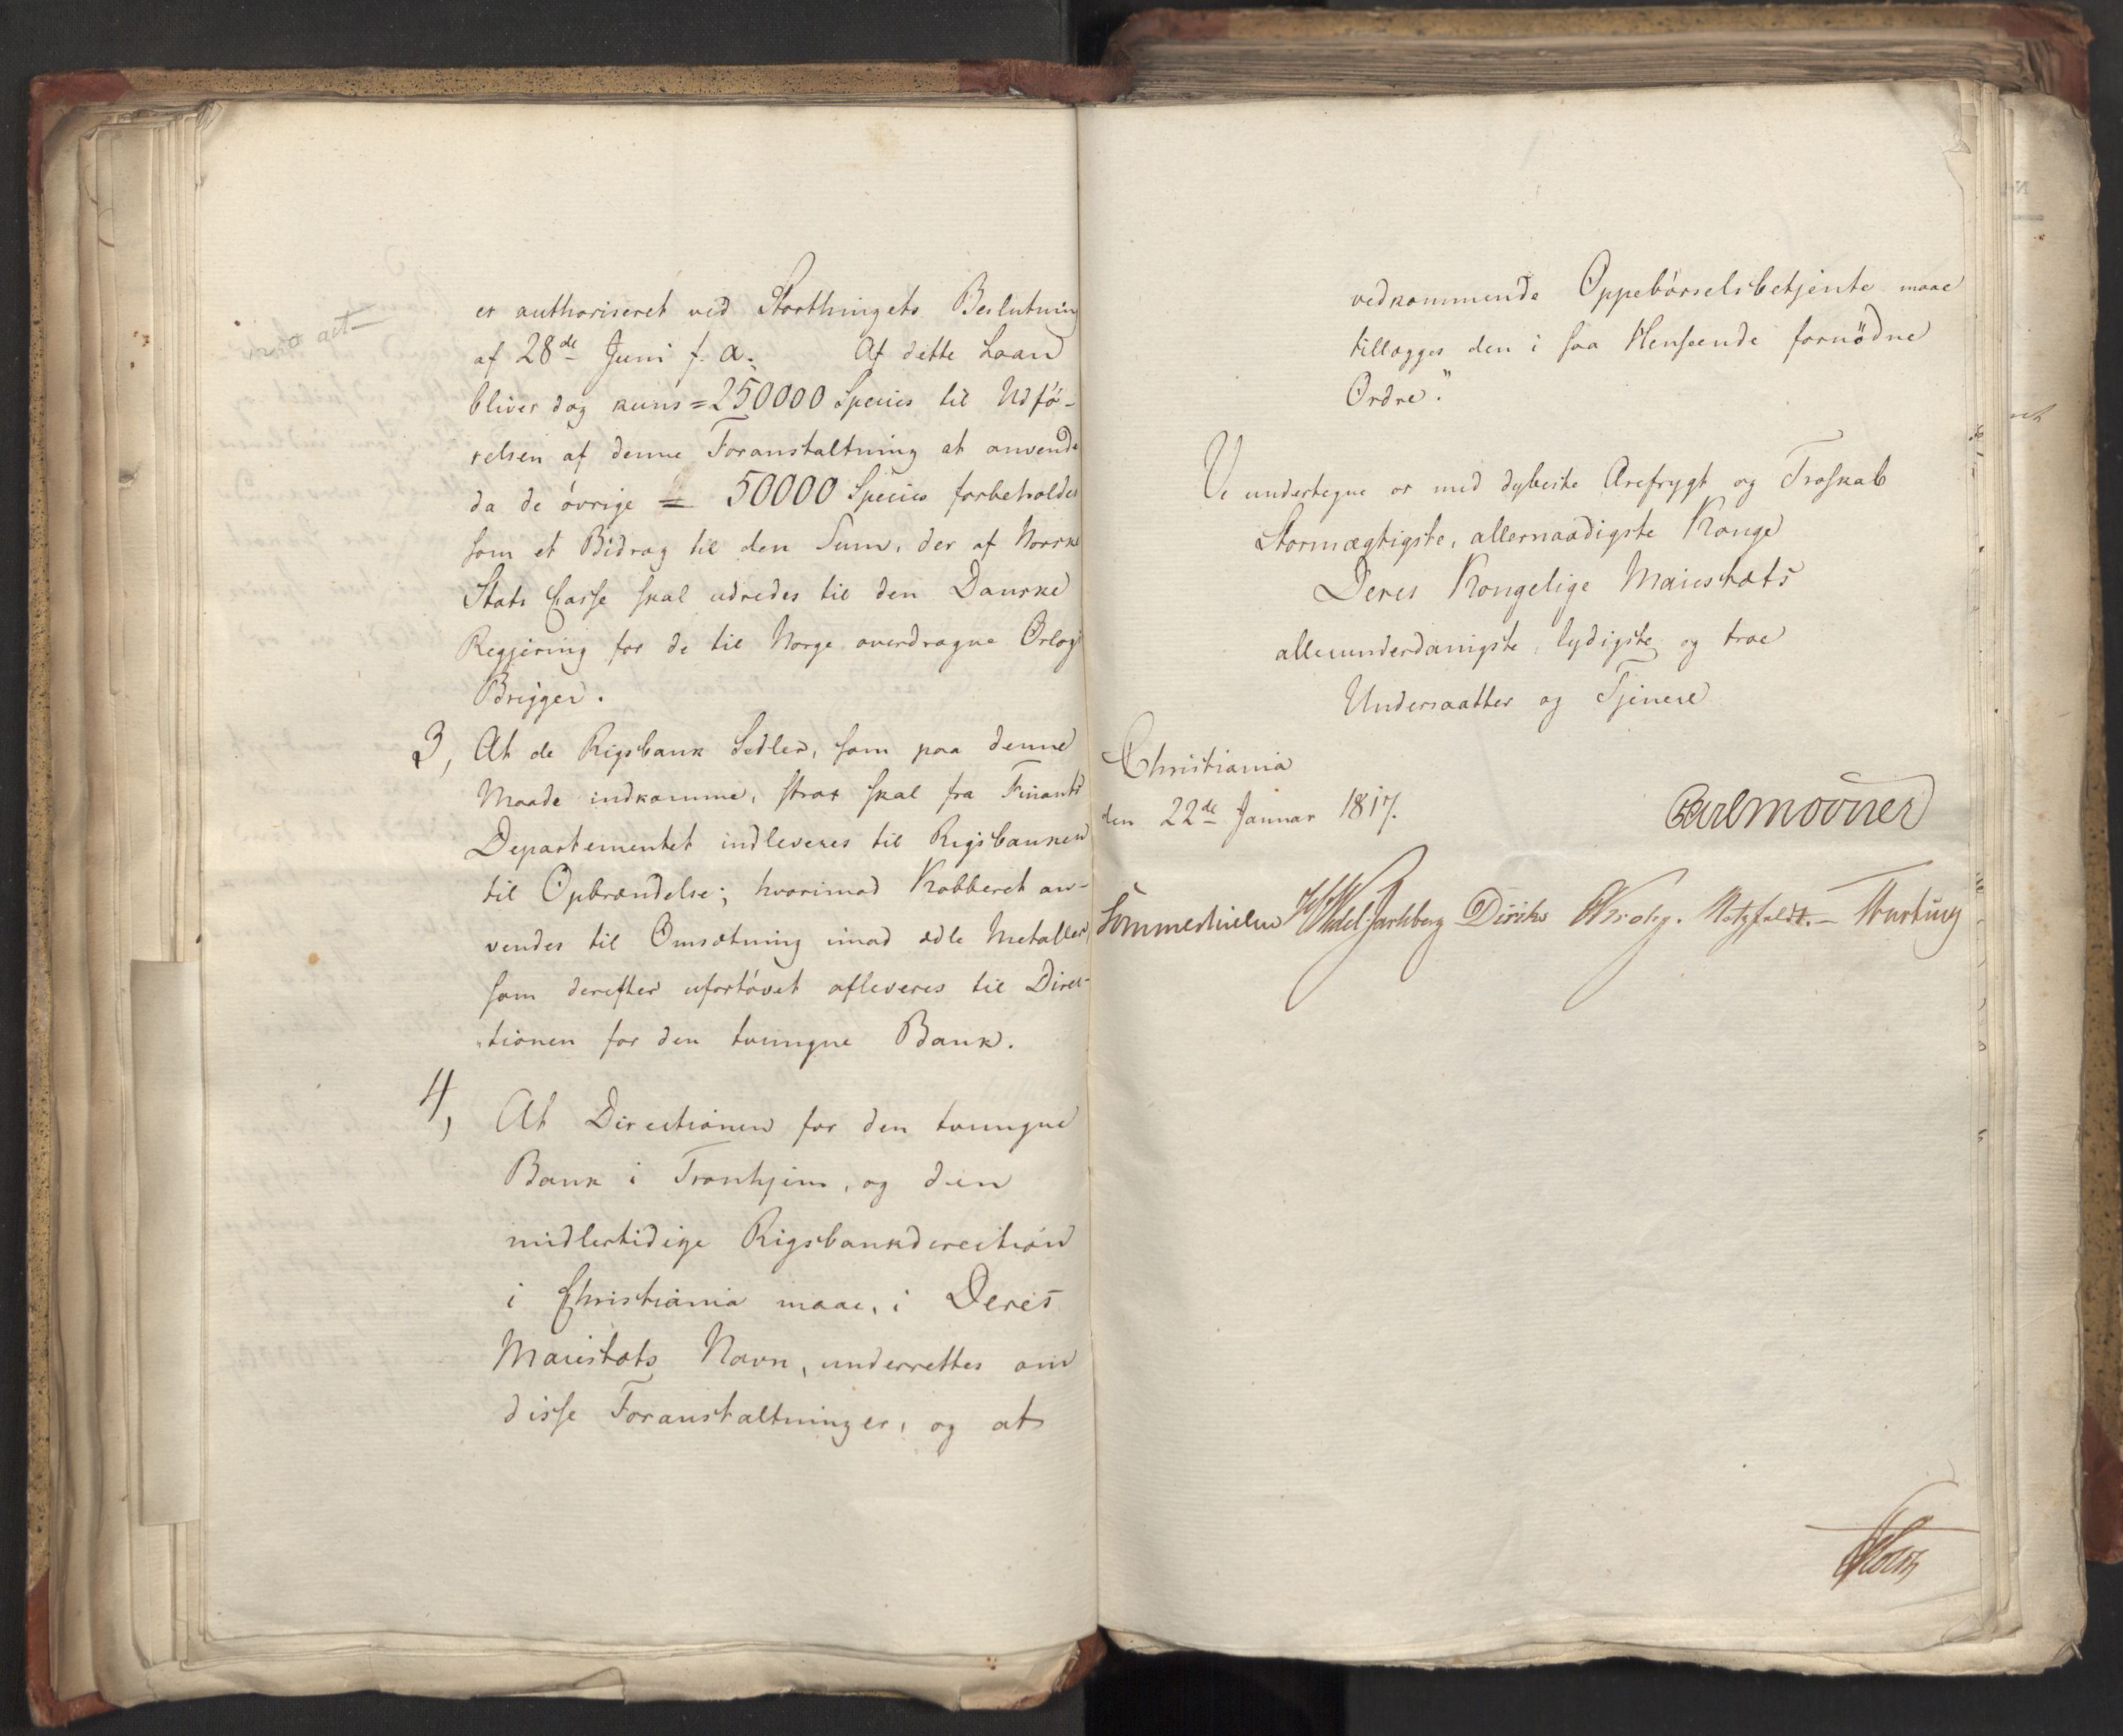 er authoriseret ved Storthingets Beslutning
af 28de Juni f. a. Af dette Laan
bliver dog kuns = 250000 Species til Udfö-
relsen af denne Foranstaltning at anvende
da de övrige = 50000 Species forbeholdes
som et Bidrag til den Sum, der af Norske
Stats Casse skal udredes til den Danske
Regjering for de til Norge overdragne Orlogs
Brigger.
3, At de Rigsbank Sedler, som paa denne
Maade indkomme, strax skal fra Finants
Departementet indleveres til Rigsbanken
til Opbrændelse; hvorimod Kobberet an-
vendes til Omsætning imod ædle Metaller,
som derefter ufortövet afleveres til Direc-
tionen for den tvungne Bank.
4, At Directionen for den tvungne
Bank i Tronhjem, og den
midlertidige Rigsbankdirection
i Christiania maae, i Deres
Maiestæts Navn, underrettes om
disse Foranstaltninger, og at
vedkommende Oppebörselsbetjente maae
tillægges den i saa Henseende fornödne
Ordre."
Vi undertegne os med dybeste Ærefrygt og Troskab
Stormægtigste, allernaadigste Konge
Deres Kongelige Maiestæts
allerunderdanigste, lydigste og troe
Undersaatter og Tjenere
Christiania
den 22de Januar 1817.
Carl Mörner
Sommerhielm HWedel Jarlsberg Diriks Krohg. Motzfeldt. Treschow
Holst